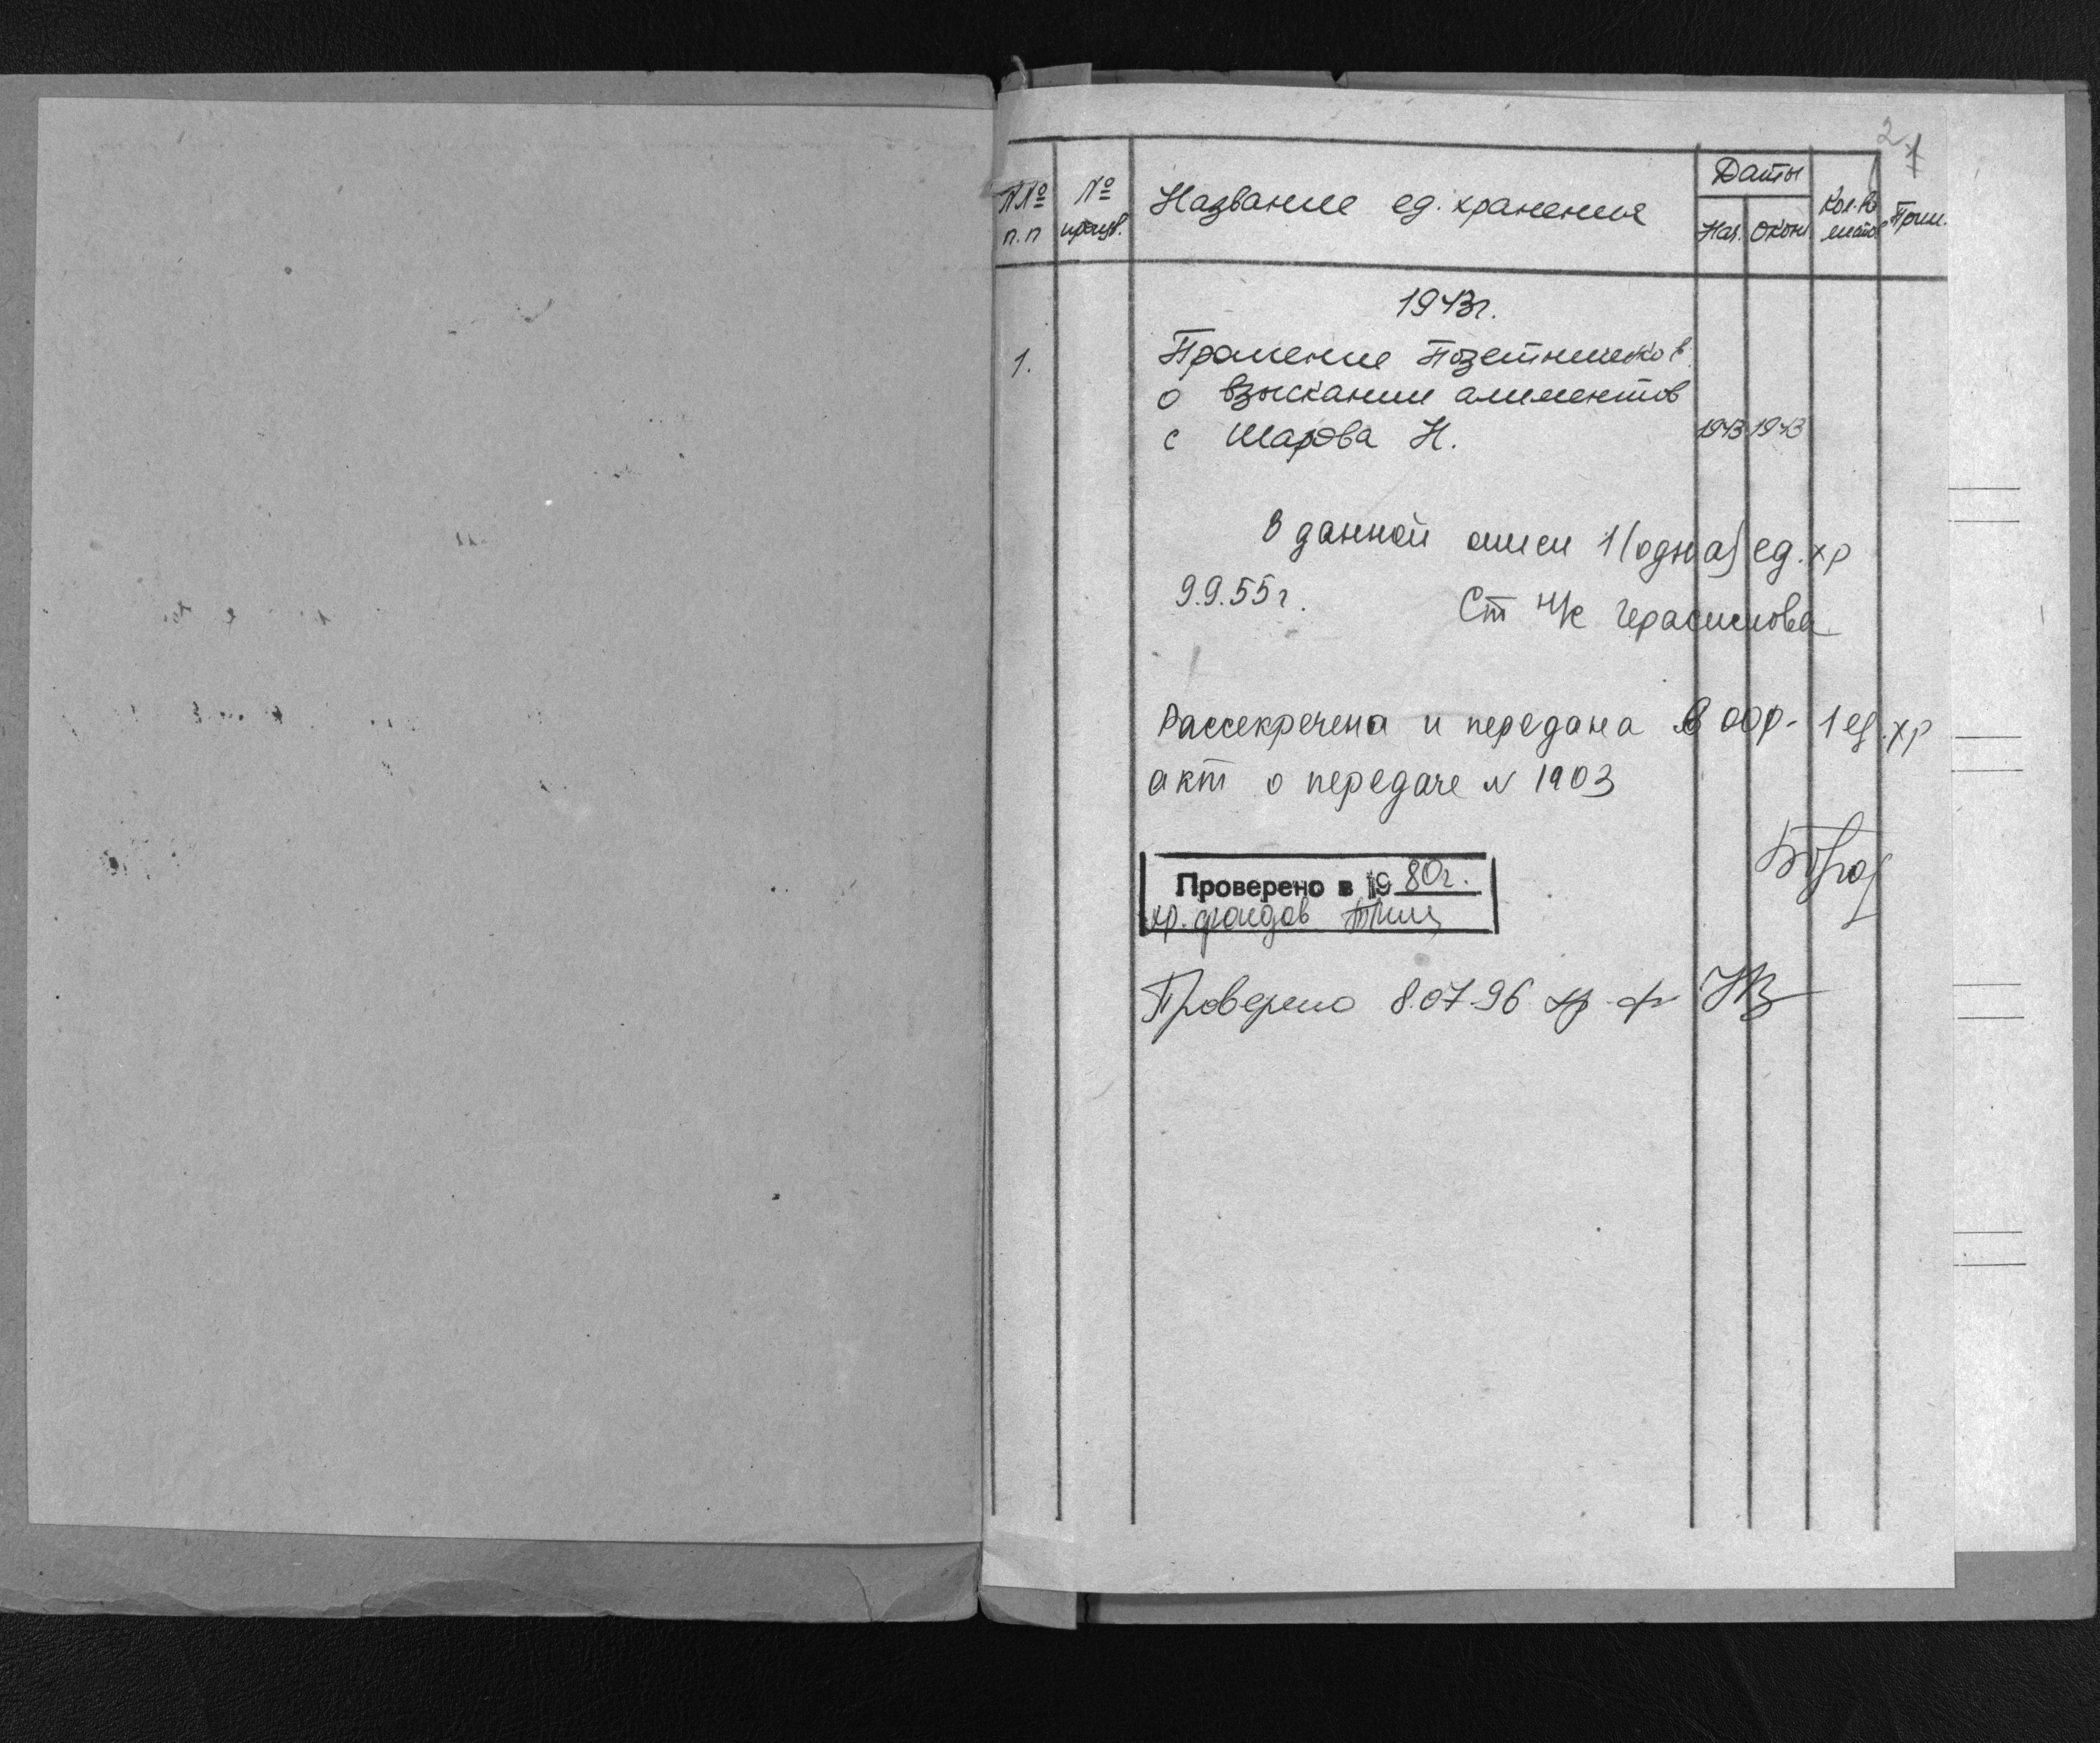 2 1
№№ п.п
№
Название ед. хранения
Даты
Нач. Окон.
Кол-во листов
Прим.
1943г.
1. Прошение
о взыскании алиментов
с Шарова Н. 1943 1943
В данной описи 1 (одна) ед. хр
9.9.55г. Ст н/с Герасимова
Рассекречена и передана в ООФ - 1 ед. хр
акт о передаче N 1903
Проверено в 1980г.
хр. фондов
Проверено 8.07.96 хр. ф